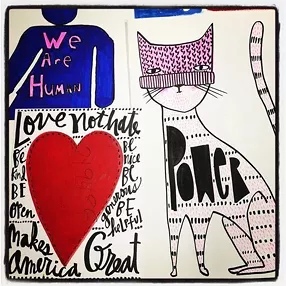 We
Are
Human
Love not hate
Be
kind
BE
open
BE
nice
BE
generous
BE
helpful
Makes
America
Great
Power